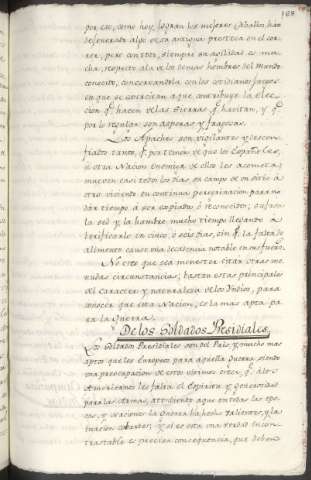 por eso, como hoy, logran los mejores Caballos, han
degenerado algo de su antigua presteza en el cor-
rer, pero con todo, siempre su agilidad es mu-
cha, respecto a la de los demas hombres del Mundo
conocido, conservandola con los cotidianos Juegos
en que se exercitan, a que contribuye la elec-
cion qe. hacen de las Sierras qe. havitan, y qe.
por lo regular son asperas y fragosas.
Los Apaches son vigilantes y descon-
fiados tanto, qe. por temor de que los Españoles,
ú otra Nacion enemiga de ellos les acometa,
mueven casi todos los dias, su campo de un sitio á
otro viviendo en continua peregrinacion para no
dar tiempo á ser espiados ó reconocidos; sufren
la sed y la hambre mucho tiempo llegando á
verificarse en cinco, ó seis dias, sin qe. la falta de
alimento cause una decadencia notable en su
No creo que sea menester citar otras me-
nudas circunstancias; bastan estas principales
del caracter y naturaleza de los Yndios, para
conocer que esta Nacion, es la mas apta pa-
ra la Guerra.
De los Soldados Presidiales.
Los Soldados Presidiales son del País, y mucho mas
aptos que los Europeos para aquella Guerra, siendo
una preocupacion de estos ultimos creer, qe. á los
Americanos les falta el Espiritu y generosidad
para las Armas, atendiendo a que en todas las epo-
cas, y naciones la Guerra ha hecho valientes, y la
inaccion cobardes; y si es esta una verdad incon-
trastable es precisa consequencia, que deben